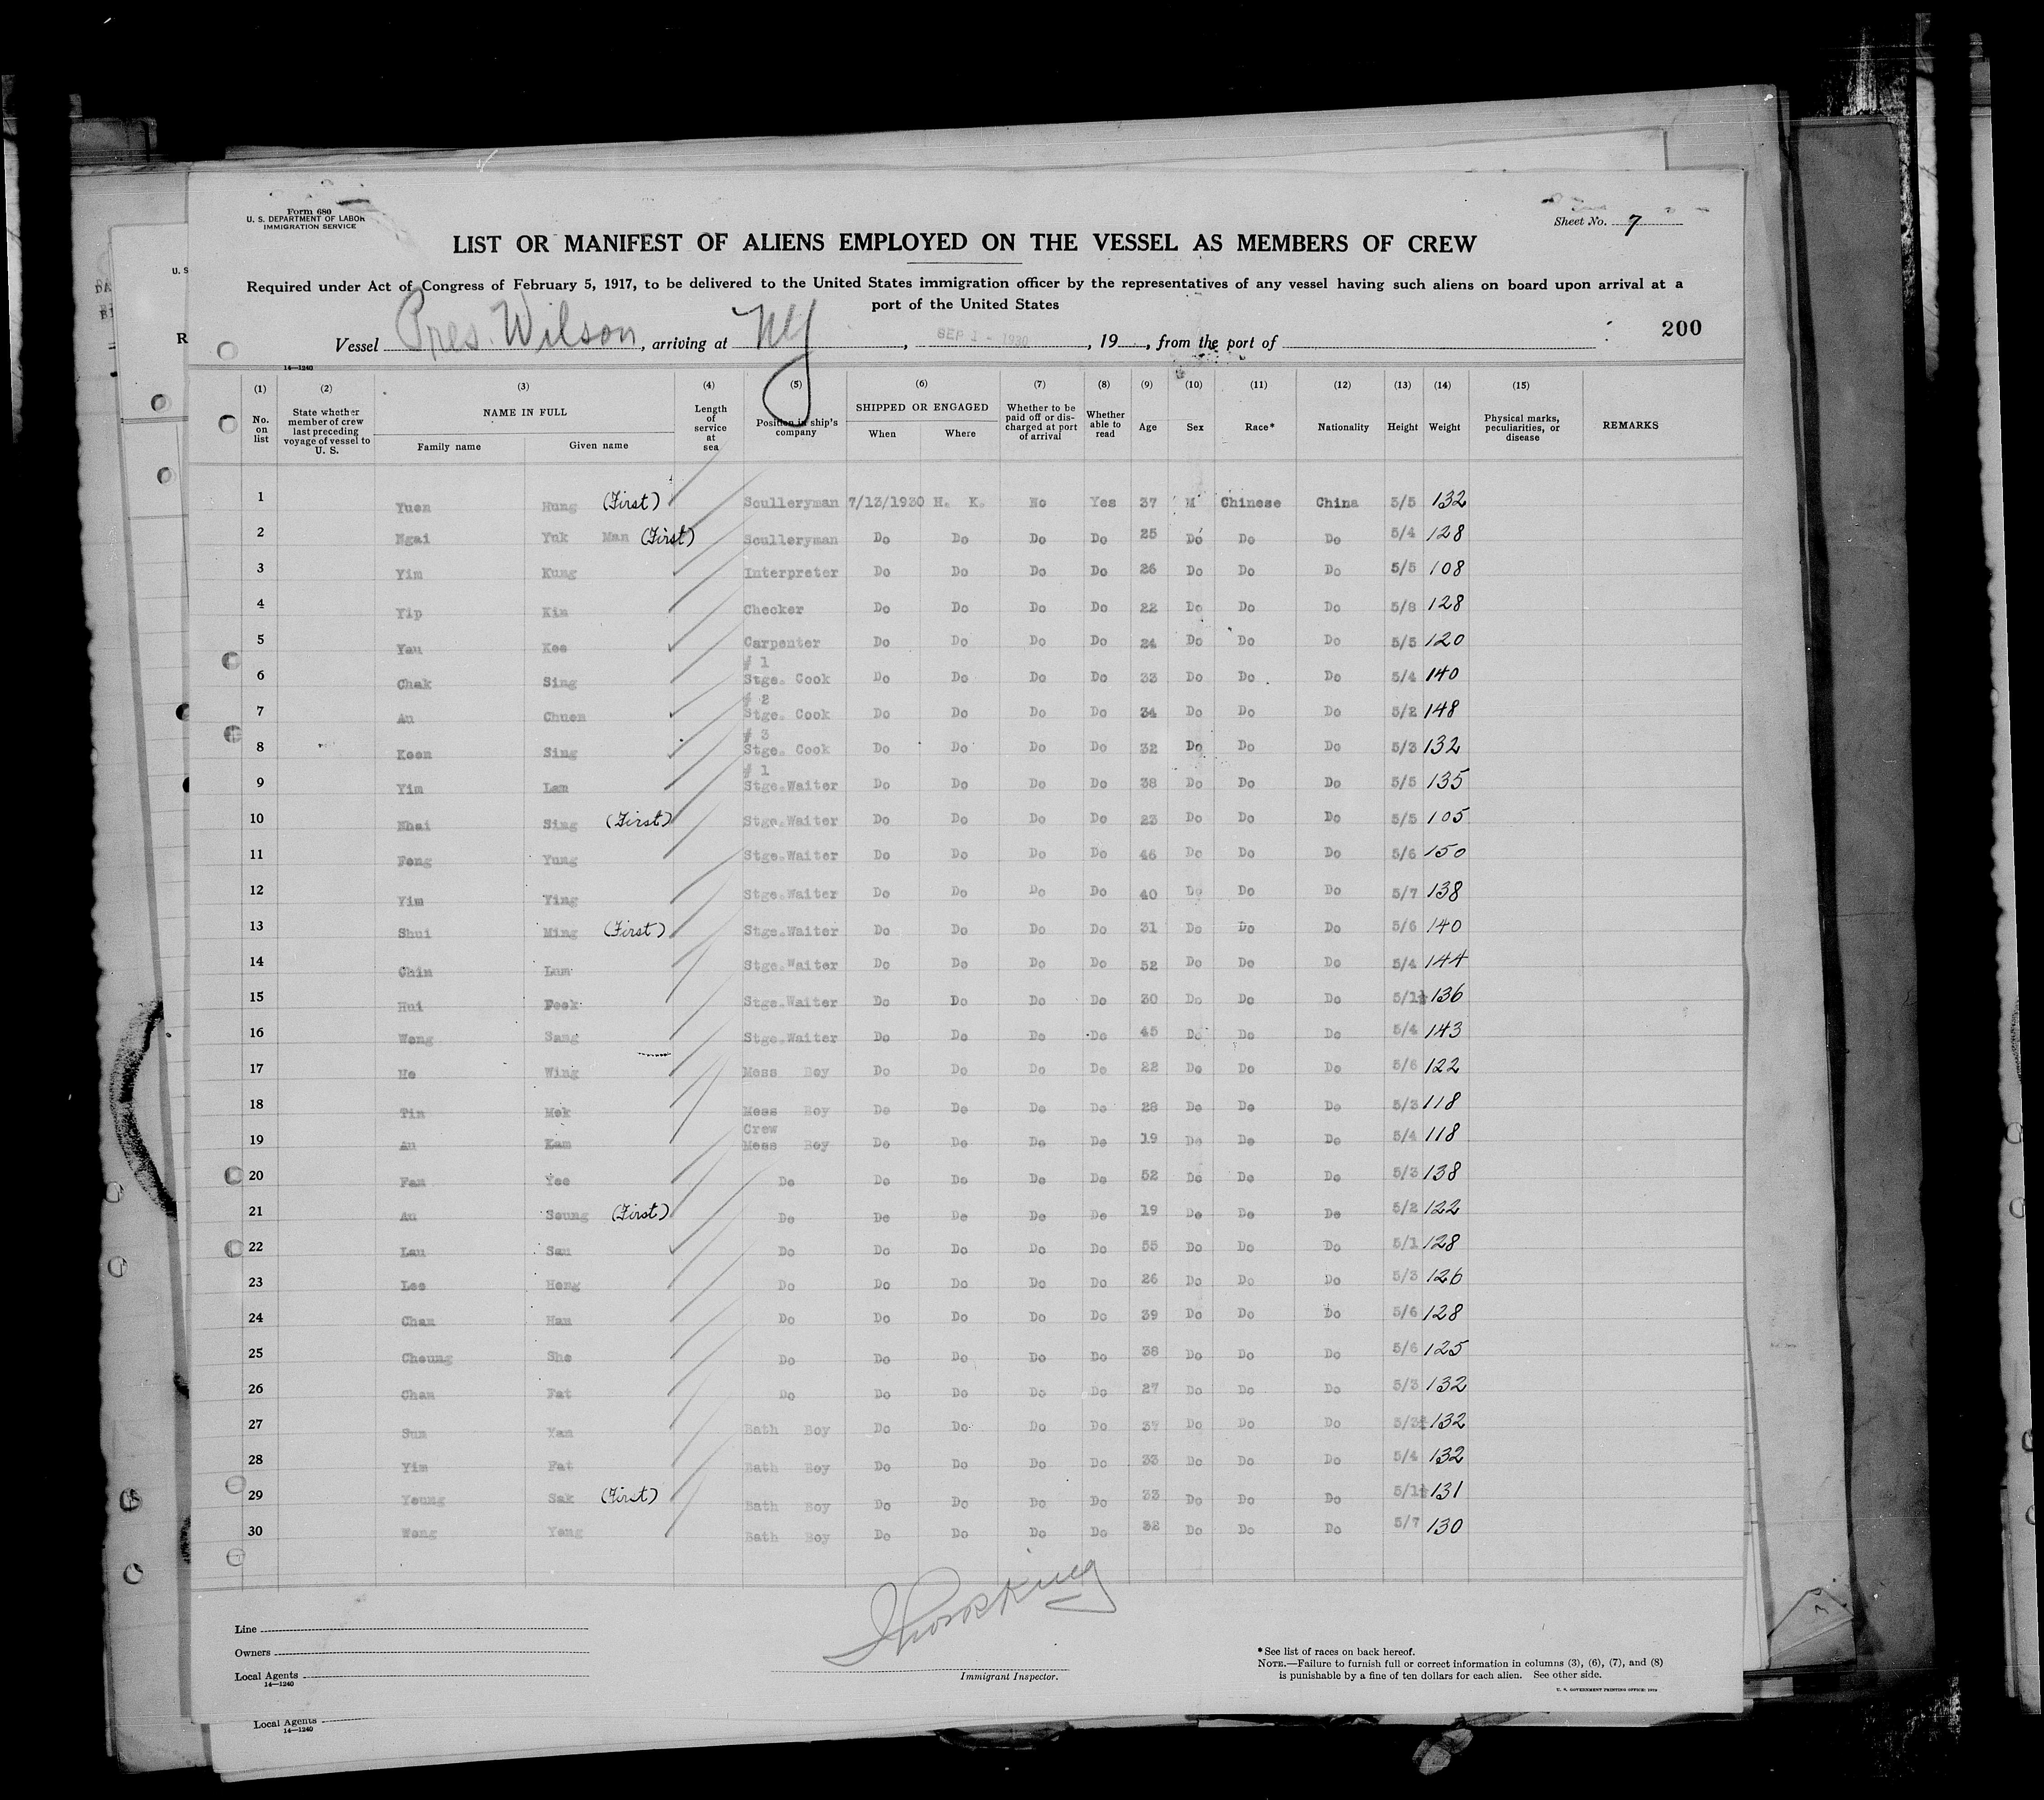 Form 680
U. S. DEPARTMENT OF LABOR
IMMIGRATION SERVICE
Sheet No. 7
LIST OR MANIFEST OF ALIENS EMPLOYED ON THE VESSEL AS MEMBERS OF CREW
Required under Act of Congress of February 5, 1917, to be delivered to the United States immigration officer by the representatives of any vessel having such aliens on board upon arrival at a
port of the United States
200
Vessel Pres. Wilson, arriving at NY, SEP 1 - 1930, 19, from the port of
14—1240
(1) (2) (3) (4) (5) (6) (7) (8) (9) (10) (11) (12) (13) (14) (15)
No. on list State whether member of crew last preceding voyage of vessel to U. S. NAME IN FULL Family name Given name Length of service at sea Position in ship's company SHIPPED OR ENGAGED When Where Whether to be paid off or discharged at port of arrival Whether able to read Age Sex Race* Nationality Height Weight Physical marks, peculiarities, or disease REMARKS
1 Yuen Hung (First) Sculleryman 7/13/1930 H. K. No Yes 37 M Chinese China 5/5 132
2 Ngai Yuk Man (First) Sculleryman Do Do Do Do 25 Do Do Do 5/4 128
3 Yim Kung Interpreter Do Do Do Do 26 Do Do Do 5/5 108
4 Yip Kim Checker Do Do Do Do 22 Do Do Do 5/8 128
5 Yau Kee Carpenter Do Do Do Do 24 Do Do Do 5/5 120
6 Chak Sing # 1 Stge. Cook Do Do Do Do 33 Do Do Do 5/4 140
7 Au Chuen # 2 Stge. Cook Do Do Do Do 34 Do Do Do 5/2 148
8 Keen Sing # 3 Stge. Cook Do Do Do Do 32 Do Do Do 5/3 132
9 Yim Lam # 1 Stge.Waiter Do Do Do Do 38 Do Do Do 5/5 135
10 Sing (First) Stge.Waiter Do Do Do Do 23 Do Do Do 5/5 105
11 Fong Yung Stge.Waiter Do Do Do Do 46 Do Do Do 5/6 150
12 Yim Ying Stge.Waiter Do Do Do Do 40 Do Do Do 5/7 138
13 Shui Ming (First) Stge.Waiter Do Do Do Do 31 Do Do Do 5/6 140
14 Chim Lum Stge.Waiter Do Do Do Do 52 Do Do Do 5/4 144
15 Hui Stge.Waiter Do Do Do Do 30 Do Do Do 5/1½ 136
16 Wong Sang Stge.Waiter Do Do Do Do 45 Do Do Do 5/4 143
17 Ho Wing Mess Boy Do Do Do Do 22 Do Do Do 5/6 122
18 Tim Mok Mess Boy Do Do Do Do 28 Do Do Do 5/3 118
19 Au Kam Crew Mess Boy Do Do Do Do 19 Do Do Do 5/4 118
20 Fan Yee Do Do Do Do Do 52 Do Do Do 5/3 138
21 Au Seung (First) Do Do Do Do Do 19 Do Do Do 5/2 122
22 Lau Sau Do Do Do Do Do 55 Do Do Do 5/1 128
23 Lee Hong Do Do Do Do Do 26 Do Do Do 5/3 126
24 Chan Han Do Do Do Do Do 39 Do Do Do 5/6 128
25 Cheung She Do Do Do Do Do 38 Do Do Do 5/6 125
26 Chan Fat Do Do Do Do Do 27 Do Do Do 5/3 132
27 Sum Yan Bath Boy Do Do Do Do 37 Do Do Do 5/3½ 132
28 Yim Fat Bath Boy Do Do Do Do 33 Do Do Do 5/4 132
29 Yeung Sak (First) Bath Boy Do Do Do Do 33 Do Do Do 5/1½ 131
30 Wong Yong Bath Boy Do Do Do Do 32 Do Do Do 5/7 130
Line
Owners
Local Agents
14—1240
Immigrant Inspector.
* See list of races on back hereof.
NOTE.—Failure to furnish full or correct information in columns (3), (6), (7), and (8)
is punishable by a fine of ten dollars for each alien. See other side.
U. S. GOVERNMENT PRINTING OFFICE: 1929
Local Agents
14—1240